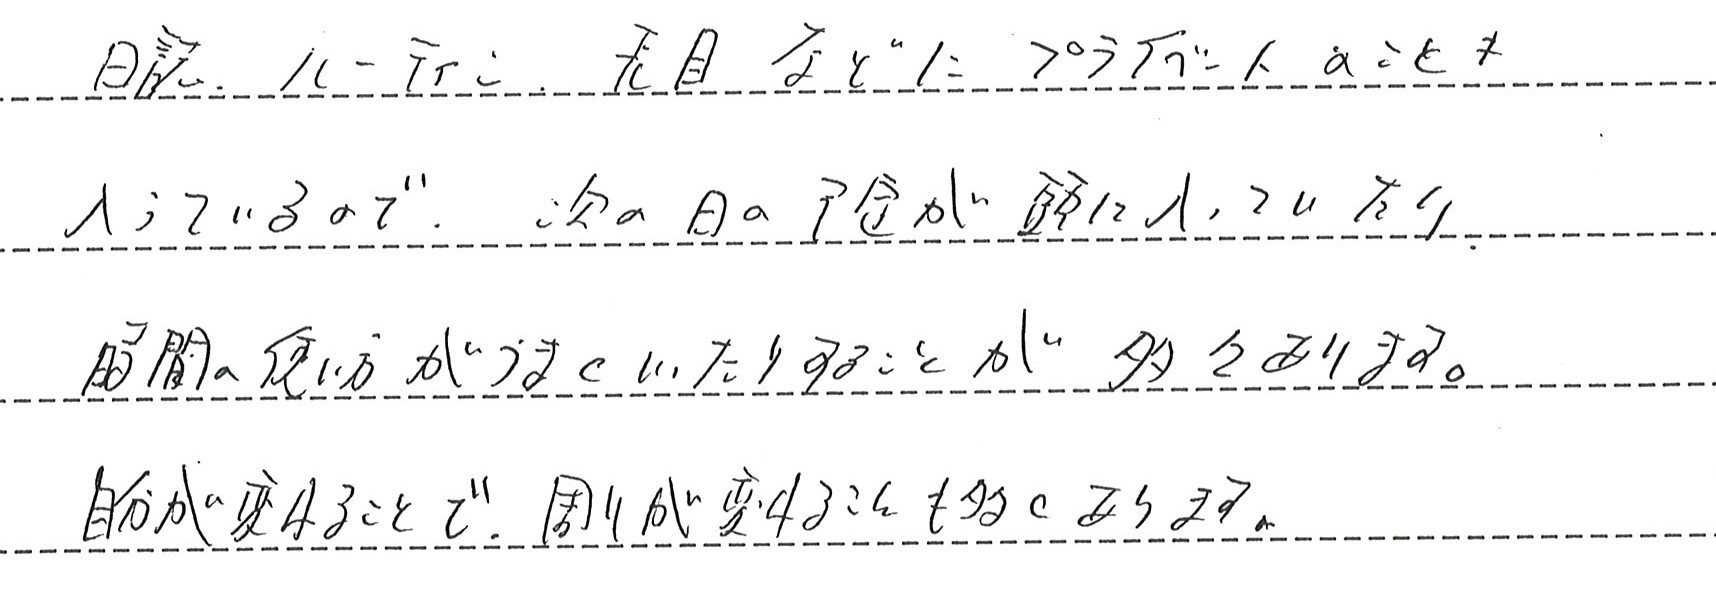 日誌、ルーティン、項目などにプライベートなことも
入っているので、次の日の予定が頭に入っていたり、
時間の使い方がうまくいったりすることが多くあります。
自分が変わることで、周りが変わることも多くあります。